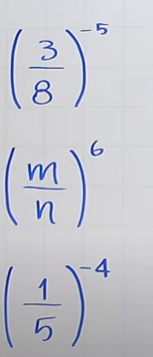 (3/8)^-5
(m/n)^6
(1/5)^-4